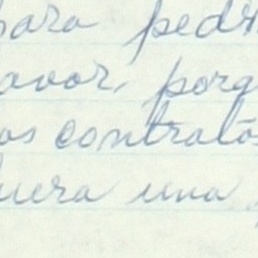 para pedi
avor, porq
os contratos
uera una